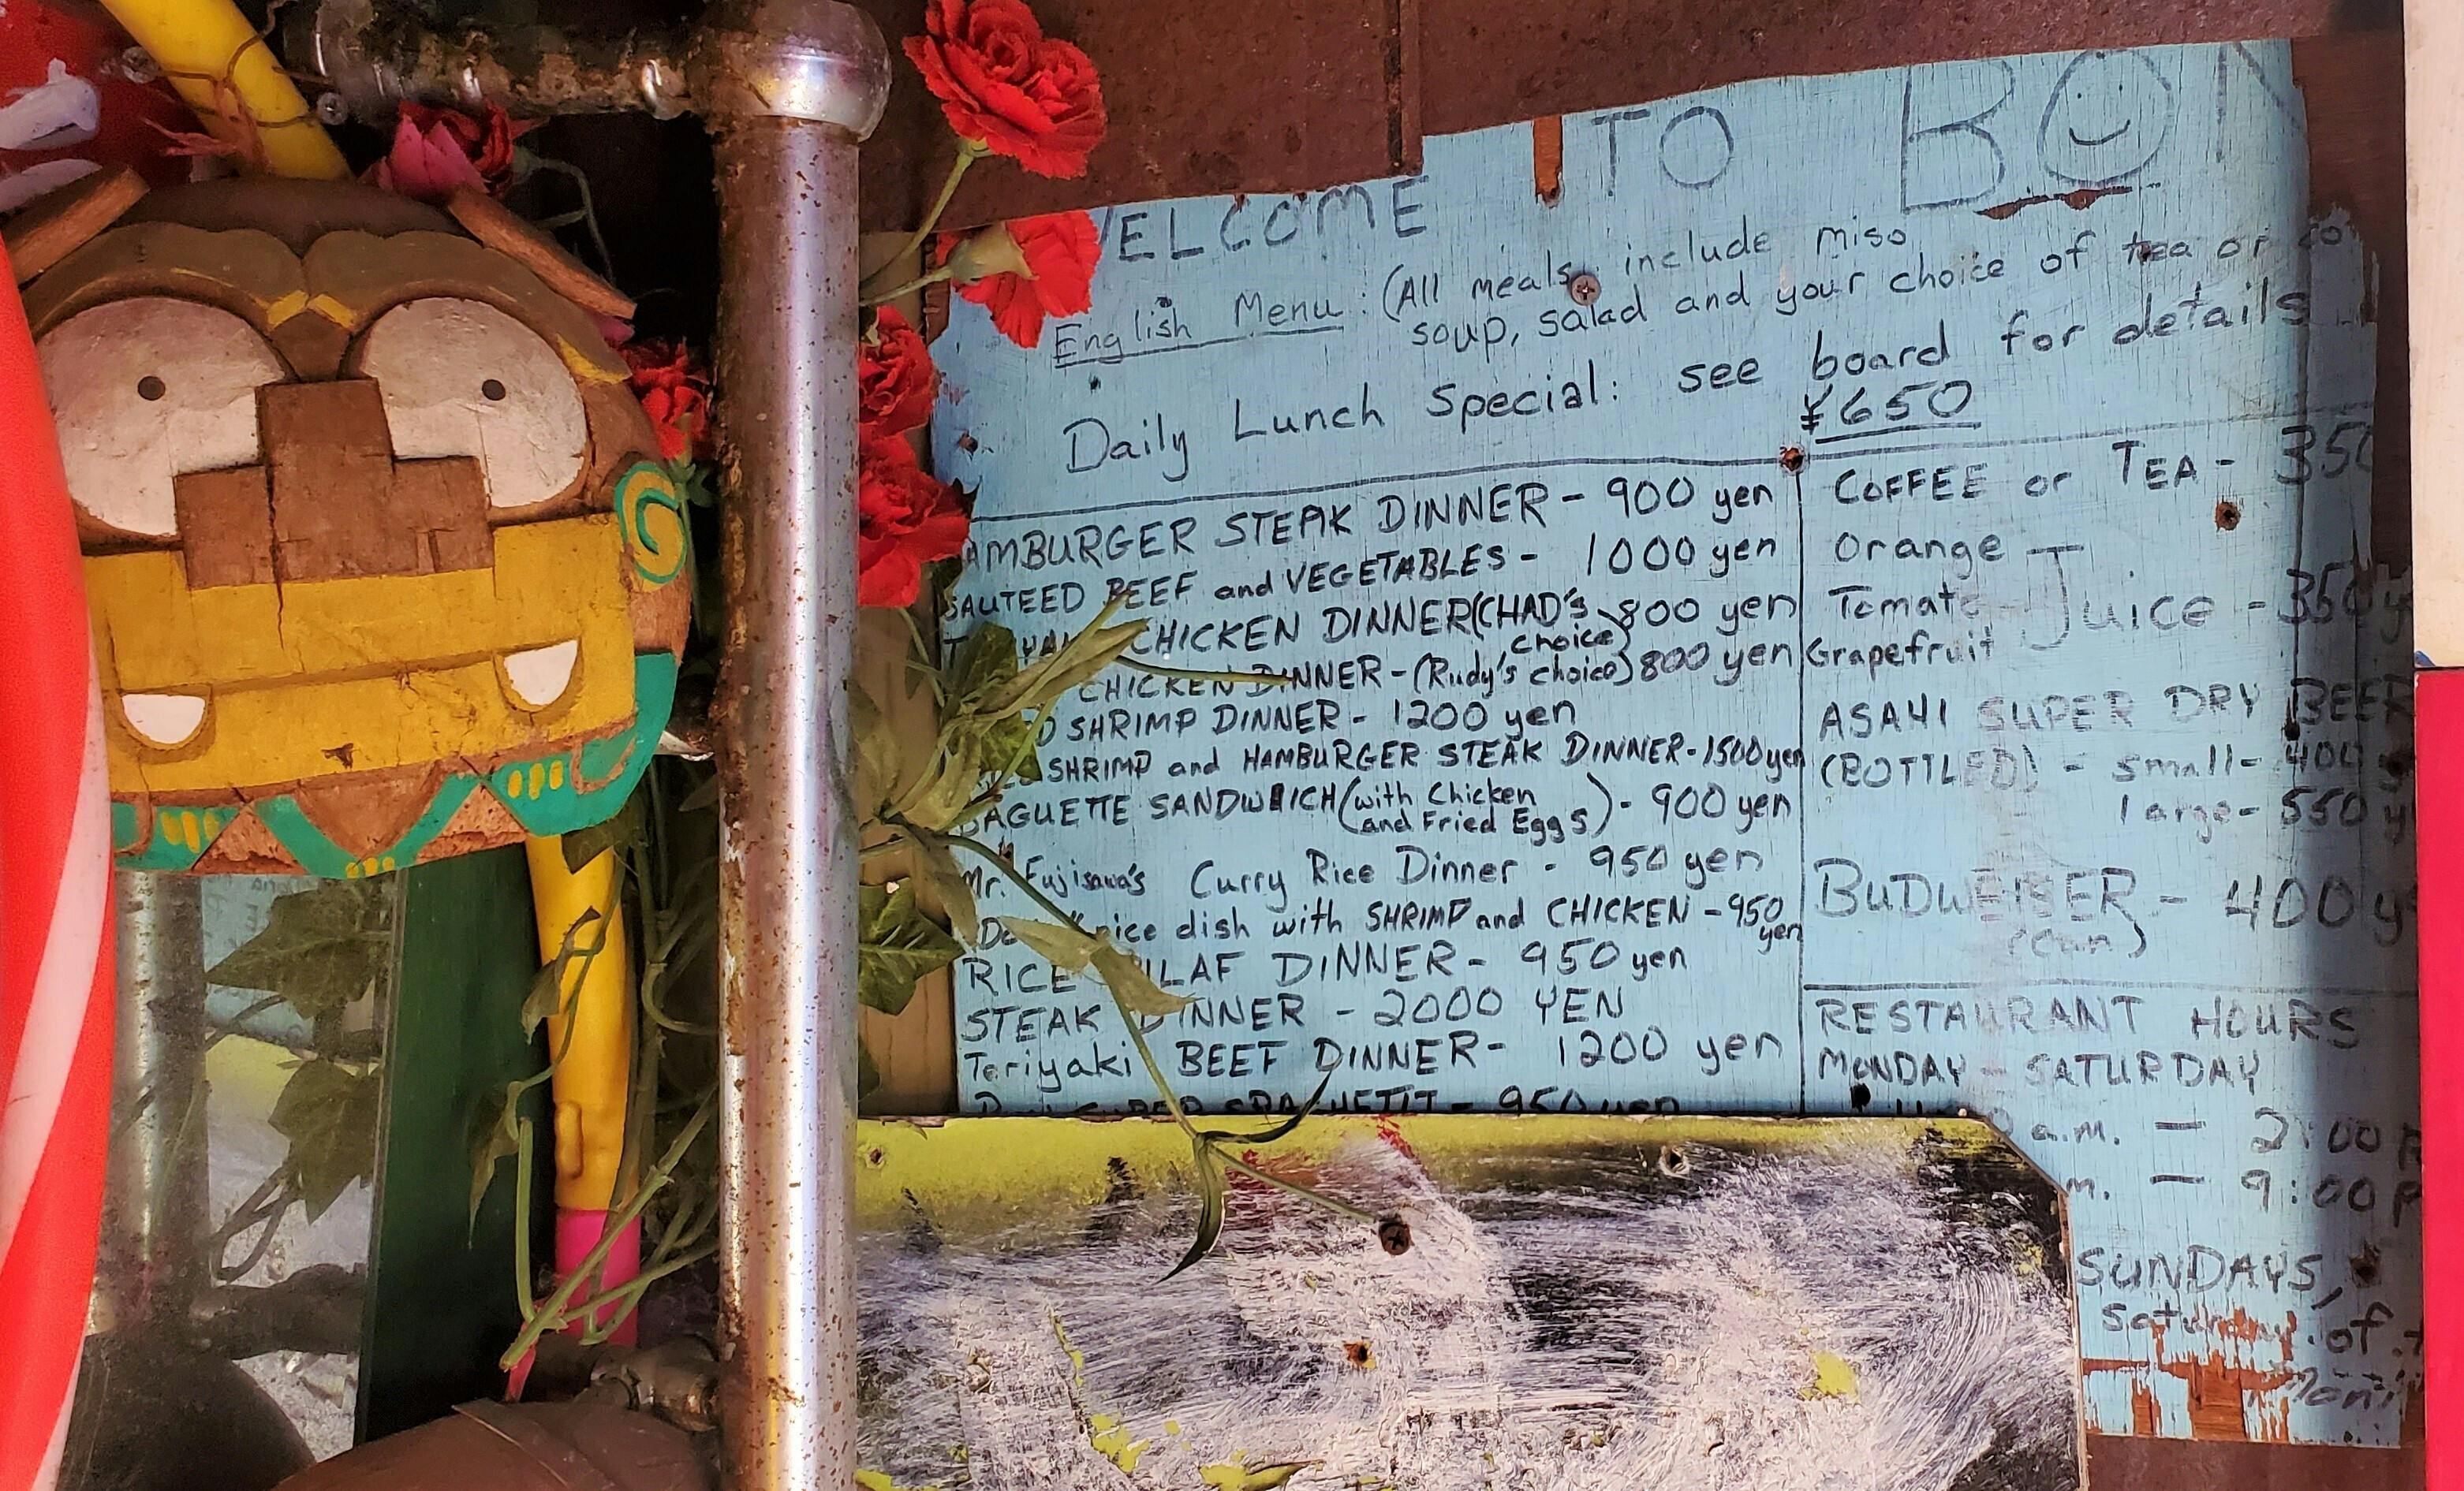 WELCOME TO BON
English Menu: (All meals include miso
soup, salad and your choice of tea or co
Daily Lunch Special: see board for details
¥650
HAMBURGER STEAK DINNER - 900 yen
SAUTEED BEEF and VEGETABLES - 1000 yen
CHICKEN DINNER (CHAD'S choice) 800 yen
CHICKEN DINNER - (Rudy's choice) 800 yen
D SHRIMP DINNER - 1200 yen
SHRIMP and HAMBURGER STEAK DINNER - 1500 yen
BAGUETTE SANDWICH (with Chicken
and Fried Eggs) - 900 yen
Mr. Fujisawa's Curry Rice Dinner - 950 yen
rice dish with SHRIMP and CHICKEN - 950 yen
RICE PILAF DINNER - 950 yen
STEAK DINNER - 2000 YEN
Teriyaki BEEF DINNER - 1200 yen
SPAGHETTI - 950 yen
COFFEE or TEA - 350
Orange
Tomato Juice - 350 y
Grapefruit
ASAHI SUPER DRY BEER
(BOTTLED) - small - 400 y
large - 550 y
BUDWEISER - 400 y
(can)
RESTAURANT HOURS
MONDAY - SATURDAY
a.m. - 2:00 P
m. - 9:00 P
SUNDAYS,
Saturday of